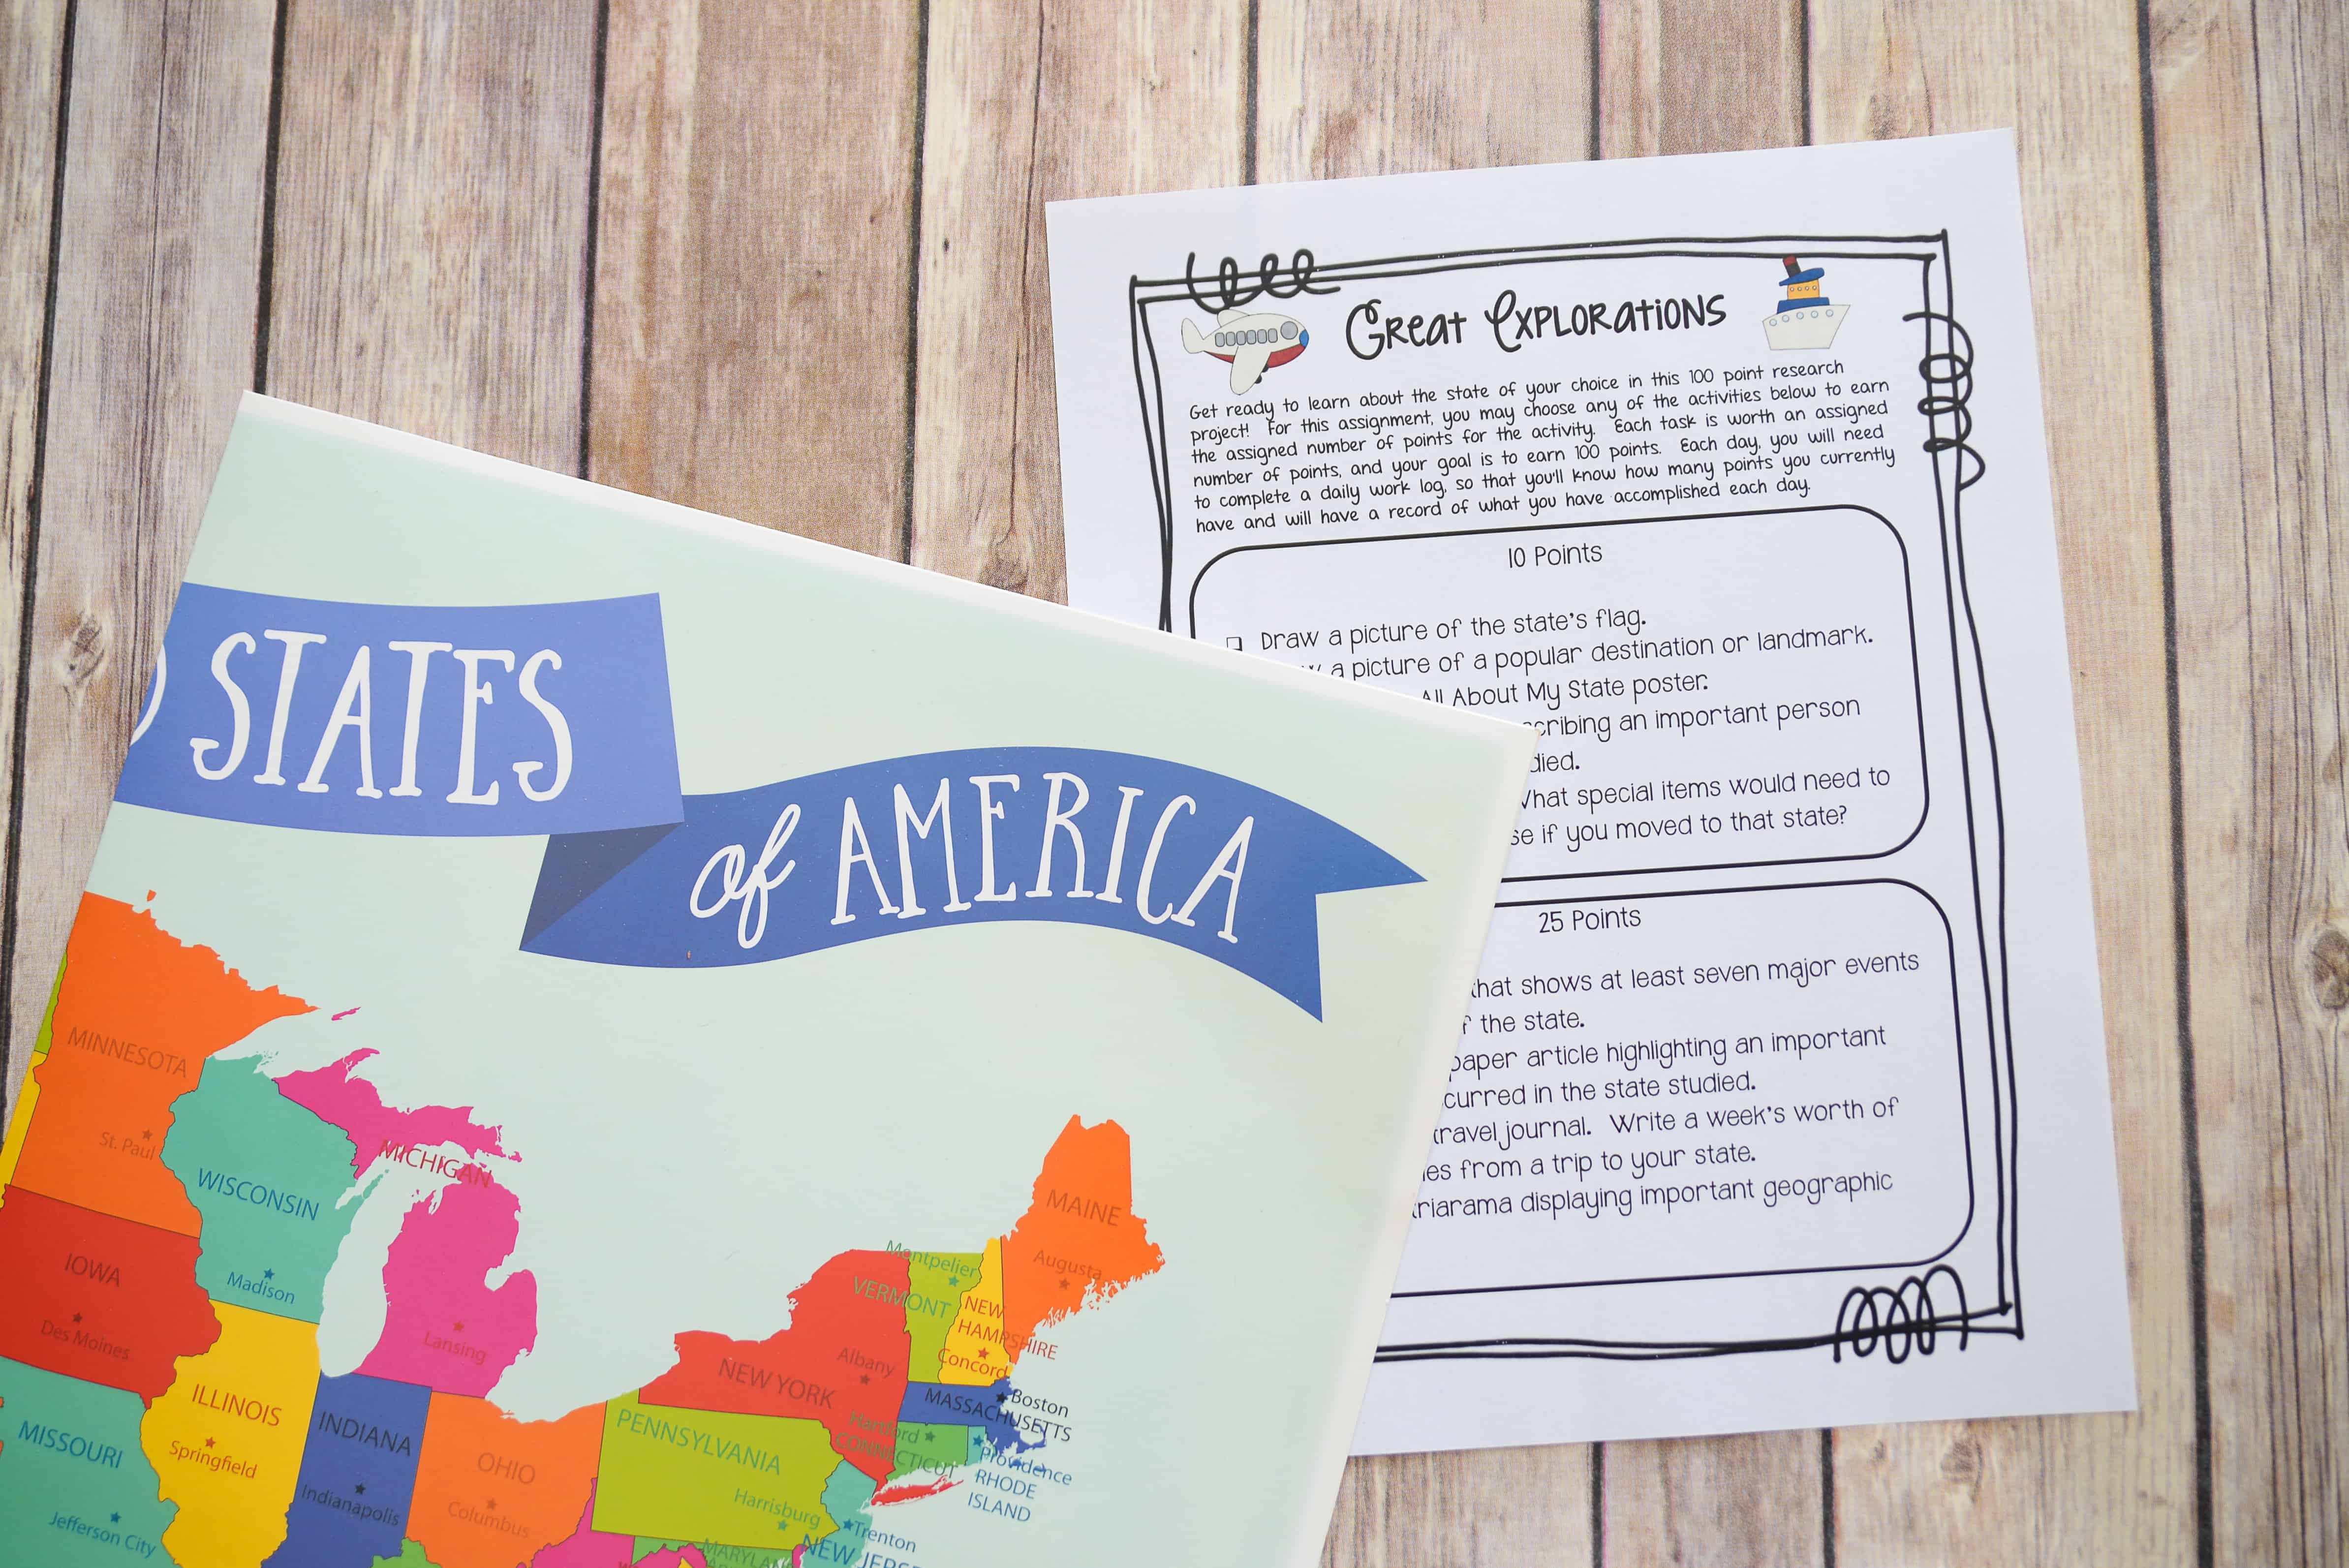 STATES
of AMERICA
MINNESOTA
St. Paul
WISCONSIN
Madison
MICHIGAN
Lansing
IOWA
Des Moines
ILLINOIS
Springfield
INDIANA
Indianapolis
MISSOURI
Jefferson City
OHIO
Columbus
PENNSYLVANIA
Harrisburg
NEW YORK
Albany
Montpelier
VERMONT
NEW
HAMPSHIRE
Concord
MAINE
Augusta
Boston
MASSACHUSETTS
Hartford
CONNECTICUT
Providence
RHODE
ISLAND
Trenton
NEW JERSE
MARYLAN
Great Explorations
Get ready to learn about the state of your choice in this 100 point research
project! For this assignment, you may choose any of the activities below to earn
the assigned number of points for the activity. Each task is worth an assigned
number of points, and your goal is to earn 100 points. Each day, you will need
to complete a daily work log, so that you'll know how many points you currently
have and will have a record of what you have accomplished each day.
10 Points
Draw a picture of the state's flag.
a picture of a popular destination or landmark.
All About My State poster.
cribing an important person
died.
What special items would need to
se if you moved to that state?
25 Points
that shows at least seven major events
f the state.
paper article highlighting an important
curred in the state studied.
travel journal. Write a week's worth of
ies from a trip to your state.
triarama displaying important geographic